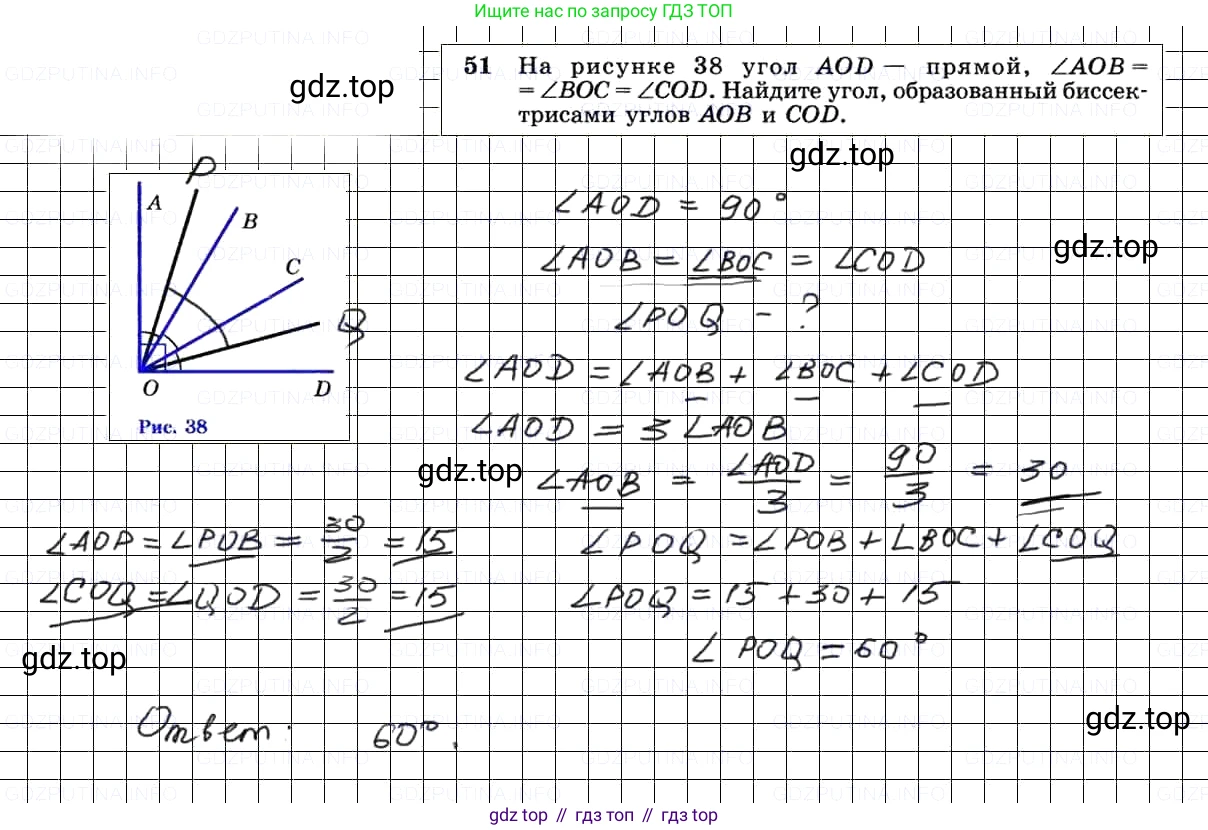 Ищите нас по запросу ГДЗ ТОП
51 На рисунке 38 угол AOD — прямой, ∠AOB =
= ∠BOC = ∠COD. Найдите угол, образованный биссек-
трисами углов AOB и COD.
gdz.top
gdz.top
P
A
B
C
Q
O
D
Рис. 38
∠AOD = 90°
∠AOB = ∠BOC = ∠COD
gdz.top
∠POQ - ?
∠AOD = ∠AOB + ∠BOC + ∠COD
∠AOD = 3 ∠AOB
gdz.top
∠AOB = ∠AOD/3 = 90/3 = 30
∠AOP = ∠POB = 30/2 = 15
∠POQ = ∠POB + ∠BOC + ∠COQ
∠COQ = ∠QOD = 30/2 = 15
∠POQ = 15 + 30 + 15
∠POQ = 60°
gdz.top
Ответ: 60°.
gdz.top
GDZPUTINA.INFO
gdz top // гдз топ // gdz top